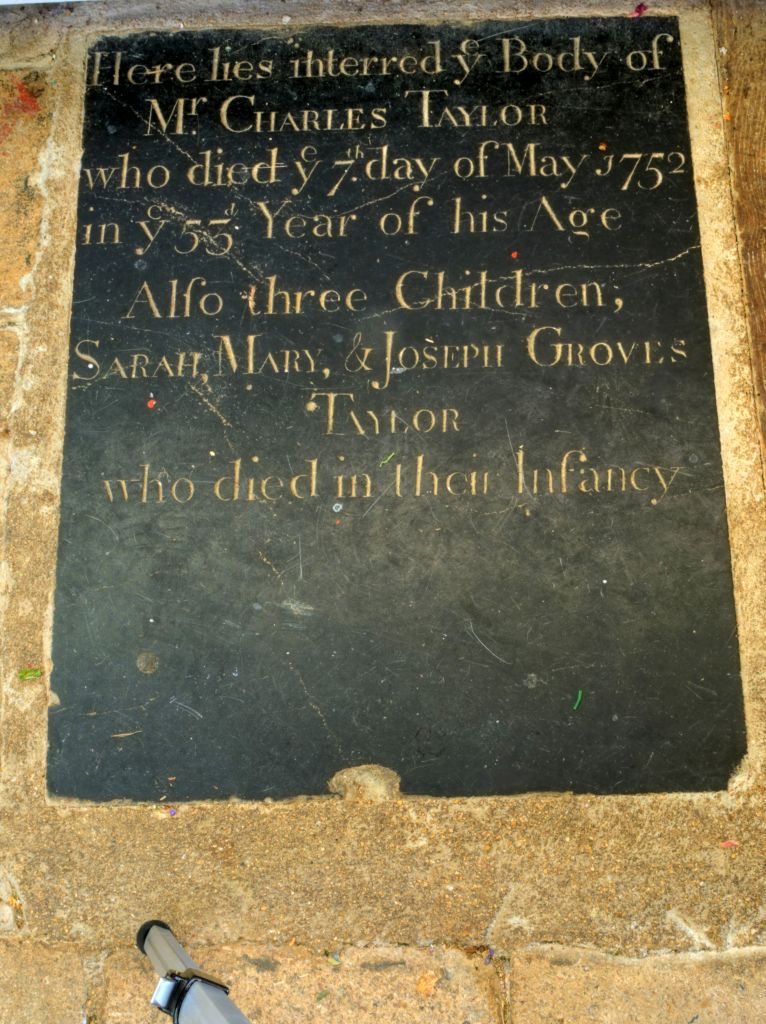 Here lies interred yᵉ Body of
Mʳ CHARLES TAYLOR
who died yᵉ 7ᵗʰ day of May 1752
in yᵉ 53ᵈ Year of his Age
Alſo three Children,
SARAH, MARY, & JOSEPH GROVES
TAYLOR
who died in their Infancy